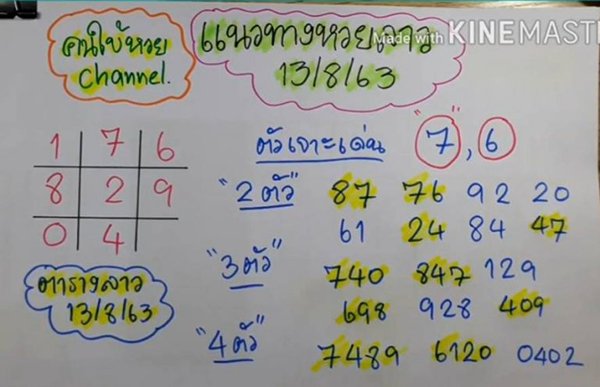 คนใบ้หวย
Channel.
แนวทางหวยลาว
13/8/63
Made with KINEMASTE
1 7 6
8 2 9
0 4
ตารางลาว
13/8/63
ตัวเจาะเด่น "7", 6
"2 ตัว" 87 76 92 20
61 24 84 47
"3 ตัว" 740 847 129
698 928 409
"4 ตัว" 7489 6120 0402